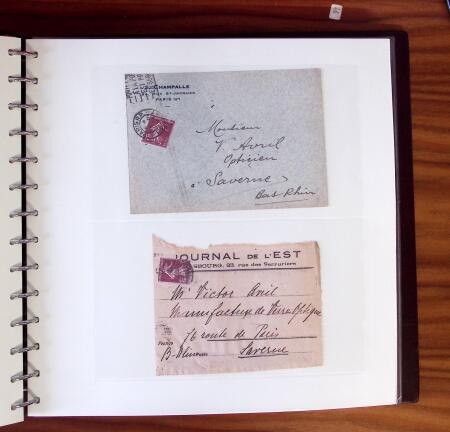 CHAMPALLE
RUE ST-JACQUES
PARIS
Monsieur
V. Avril
Opticien
à Saverne
Bas Rhin
JOURNAL DE L'EST
SBOURG, 23, rue des Serruriers
Mr Victor Avril
Manufacture de Verre Optique
76 route de Paris
Saverne